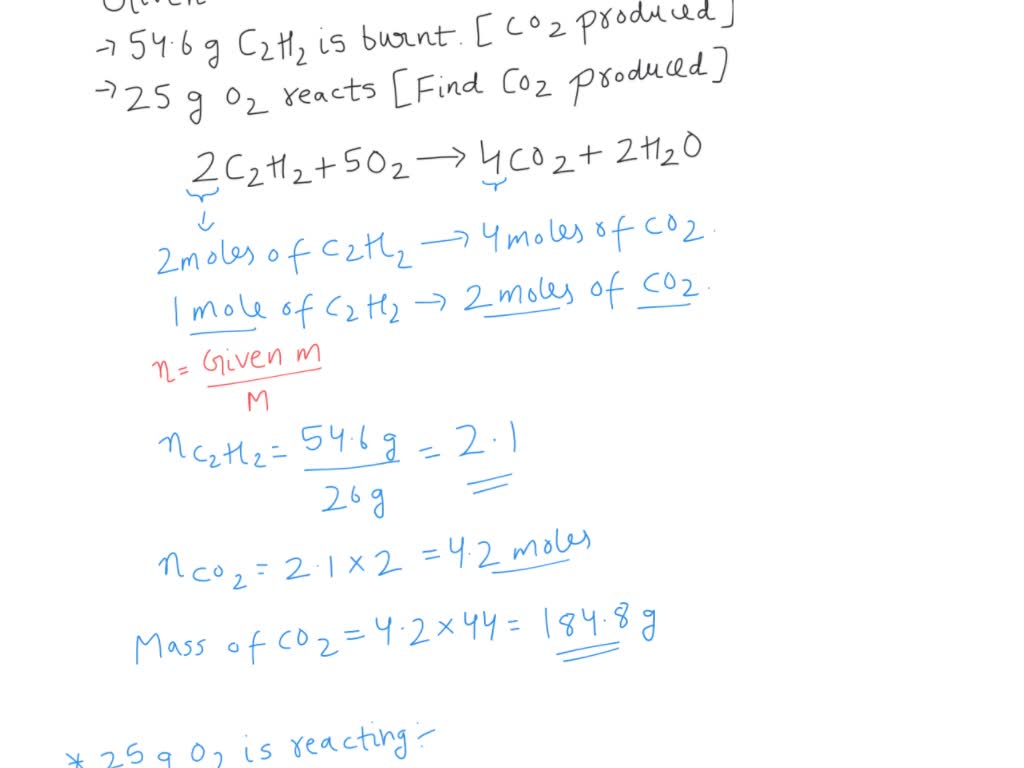 Given
→ 54.6 g C2H2 is burnt. [CO2 produced]
→ 25 g O2 reacts [Find CO2 produced]
2C2H2 + 5O2 → 4CO2 + 2H2O
2 moles of C2H2 → 4 moles of CO2.
1 mole of C2H2 → 2 moles of CO2.
n = Given m / M
nC2H2 = 54.6 g / 26 g = 2.1
nCO2 = 2.1 × 2 = 4.2 moles
Mass of CO2 = 4.2 × 44 = 184.8 g
* 25 g O2 is reacting :-